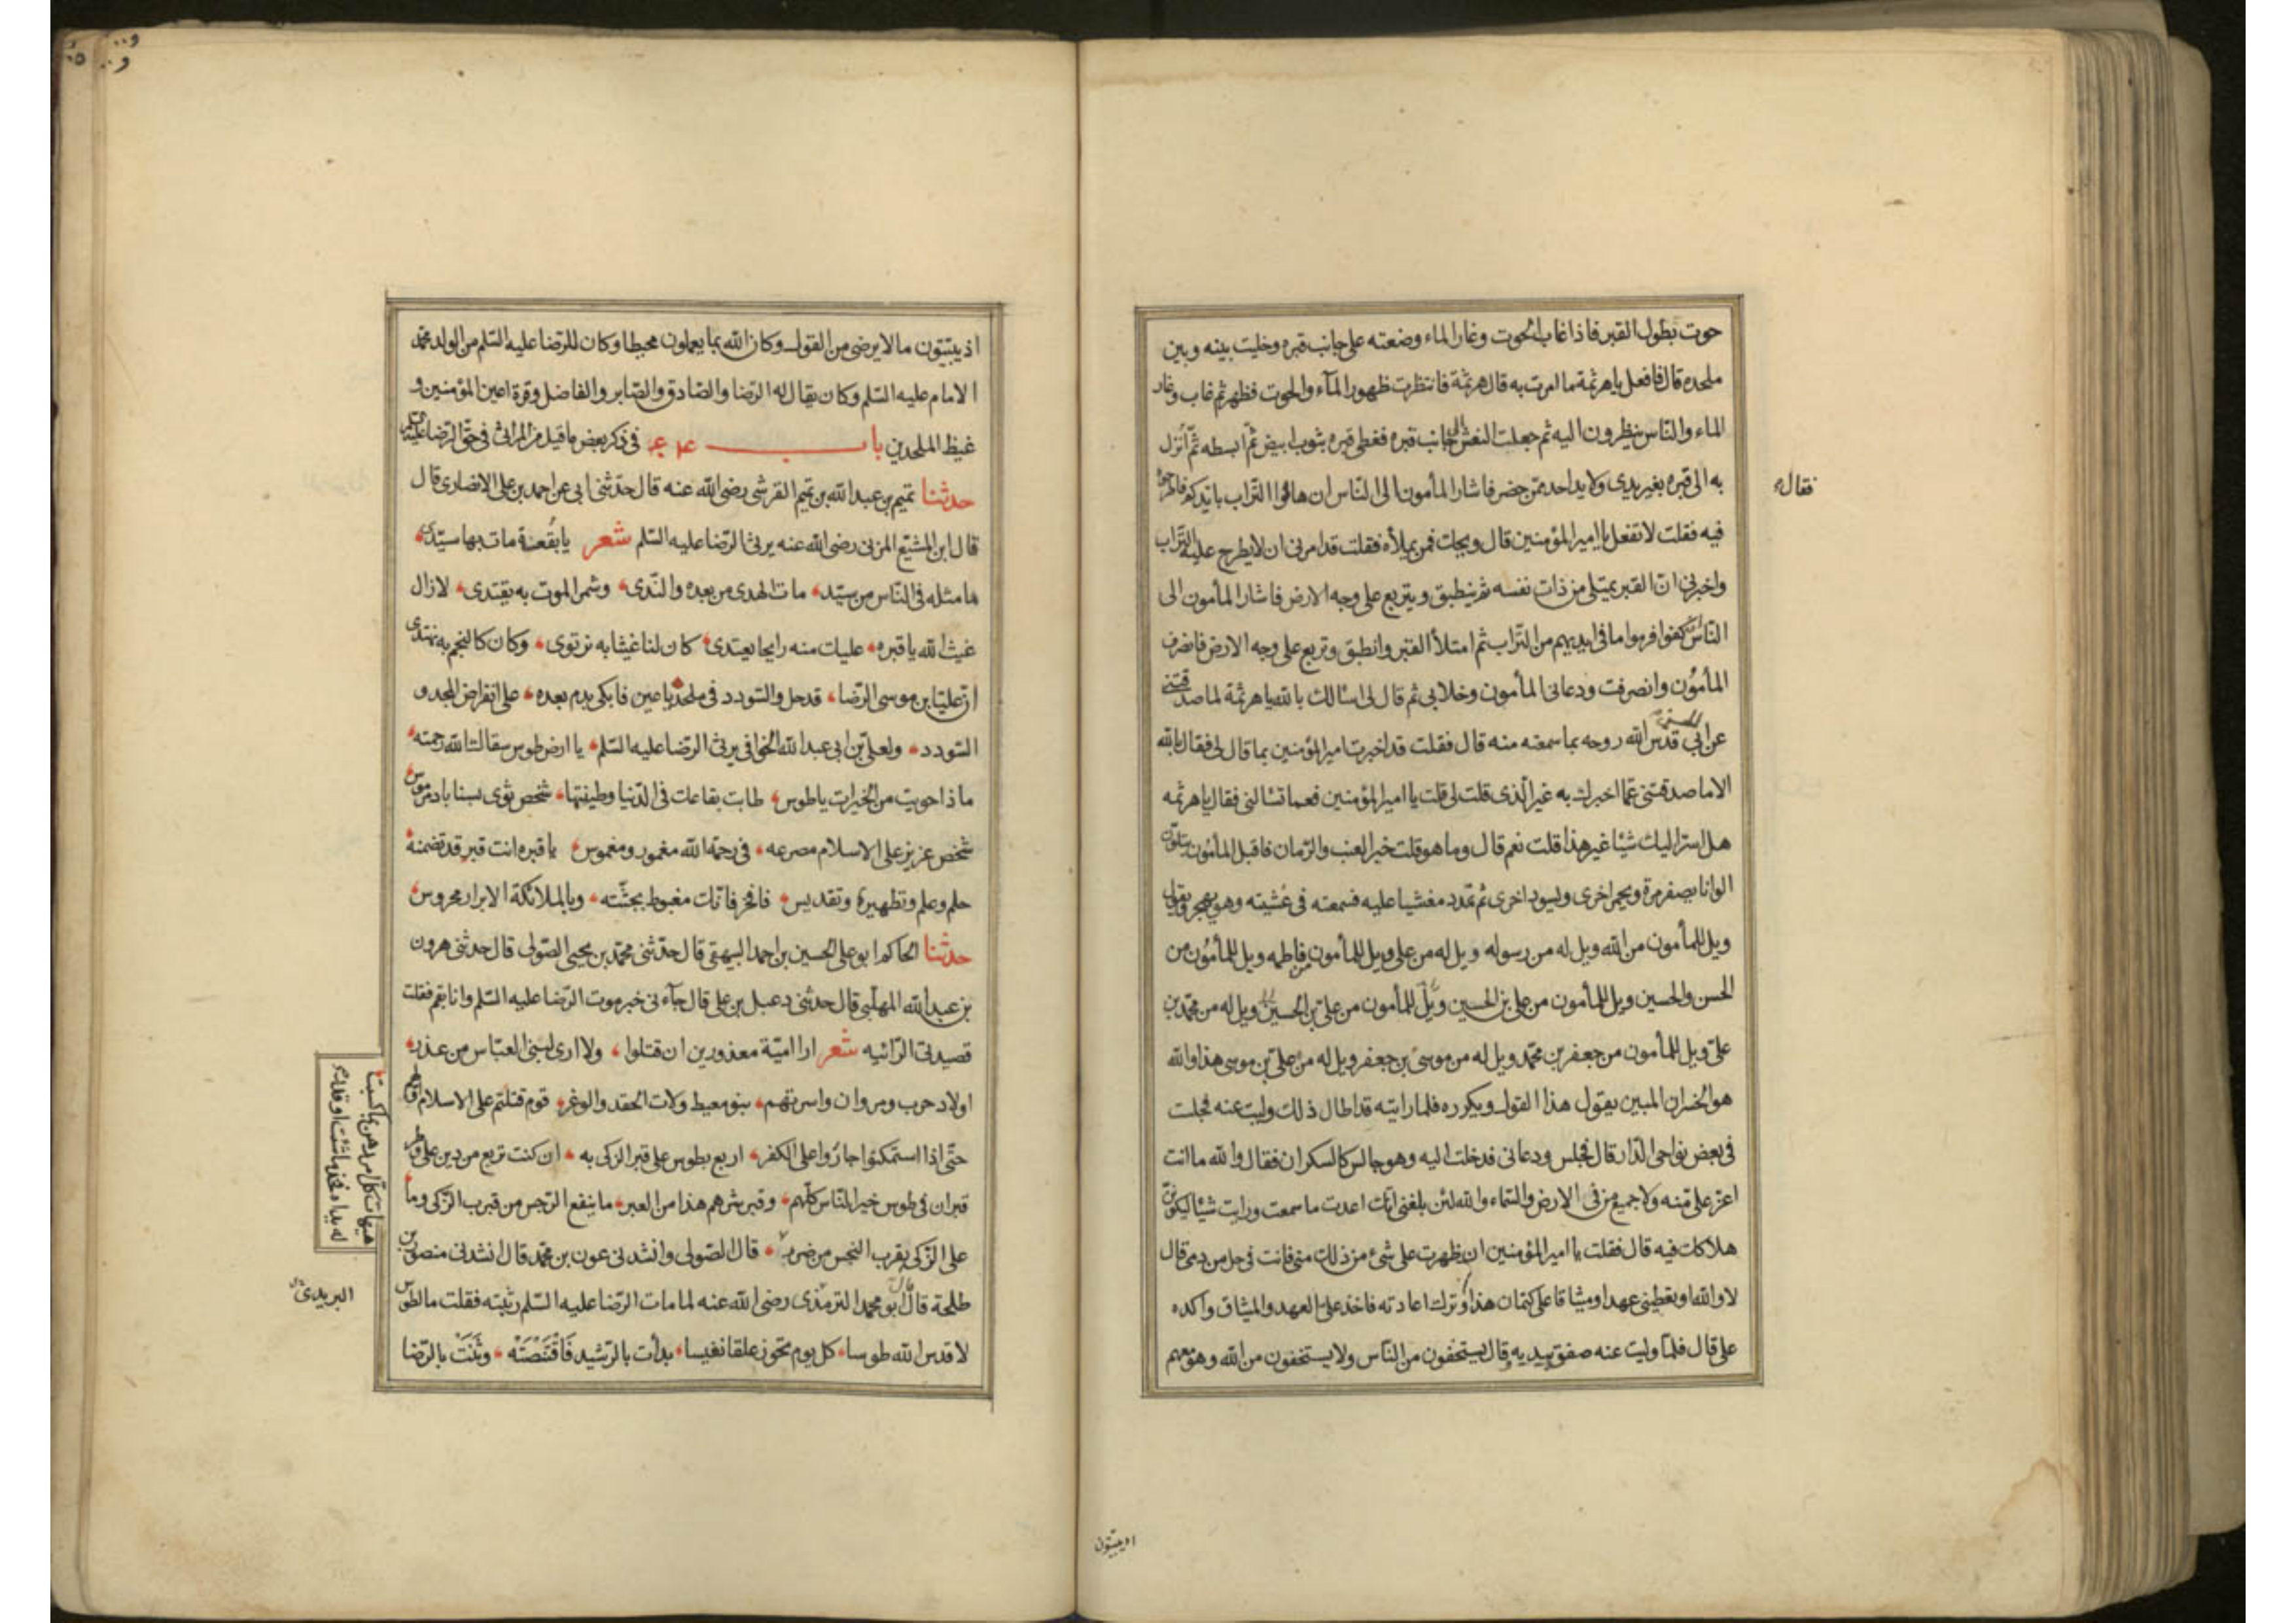 حوت بطول القبر فاذا غاب الحوت وغار الماء وضعته على جانب قبره وخليت بينه وبين
ملحده قال فافعل يا هرثمة ما امرت به قال هرثمة فانتظرت ظهور المآء والحوت فظهر ثم غاب وغار
الماء والناس ينظرون اليه ثم جعلت النعش الى جانب قبره فغطى قبره بثوب ابيض ثم ابسطه ثم أنزل
به الى قبره بغير يدى ولا يد احد ممن حضر فاشار المأمون الى الناس ان هاتوا التراب بايديكم فاطرحوا
فقال
فيه فقلت لا تفعل يا امير المؤمنين قال ويحك فمن يملأه فقلت قد امرنى ان لا يطرح عليه التراب
واخبرنى ان القبر يمتلى من ذات نفسه ثم ينطبق ويتربع على وجه الارض فاشار المأمون الى
الناس ان كفوا فرموا ما فى ايديهم من التراب ثم امتلأ القبر وانطبق وتربع على وجه الارض فانصرف
المأمون وانصرفت ودعانى المأمون وخلا بى ثم قال لى اسالك بالله يا هرثمة لما صدقتنى
عن ابى الحسن قدس الله روحه بما سمعته منه قال فقلت قد اخبرت امير المؤمنين بما قال لى فقال بالله
الا ما صدقتنى عما اخبرك به غير الذى قلت لى قلت يا امير المؤمنين فعما تسالنى فقال يا هرثمه
هل اسر اليك شيئا غير هذا قلت نعم قال وما هو قلت خبر العنب والرمان فاقبل المأمون يتلون
الوانا يصفر مرة ويحمر اخرى ويسود اخرى ثم تمدد مغشيا عليه فسمعته فى غشيته وهو يهجر ويقول
ويل للمأمون من الله ويل له من رسوله ويل له من على ويل للمأمون من فاطمه ويل للمأمون من
الحسن والحسين ويل للمأمون من على بن الحسين ويل للمأمون من على بن الحسين ويل له من محمد بن
على ويل للمأمون من جعفر بن محمد ويل له من موسى بن جعفر ويل له من على بن موسى هذا والله
هو الخسران المبين يقول هذا القول ويكرره فلما رايته قد اطال ذلك وليت عنه فجلست
فى بعض نواحى الدار قال فجلس ودعانى فدخلت اليه وهو جالس كالسكران فقال والله ما انت
اعز على منه ولا جميع من فى الارض والسماء والله لئن بلغنى انك اعدت ما سمعت ورايت شيئا ليكونن
هلاكك فيه قال فقلت يا امير المؤمنين ان ظهرت على شىء من ذلك منى فانت فى حل من دمى قال
لا والله او تعطينى عهدا وميثاقا على كتمان هذا وترك اعادته فاخذ على العهد والميثاق واكده
على قال فلما وليت عنه صفق بيديه وقال يستخفون من الناس ولا يستخفون من الله وهو معهم
اذ يبيتون
اذ يبيتون ما لا يرضى من القول وكان الله بما يعملون محيطا وكان للرضا عليه السلم من الولد محمد
الامام عليه السلم وكان يقال له الرضا والصادق والصابر والفاضل وقرة اعين المؤمنين و
غيظ الملحدين باب فى ذكر بعض ما قيل من المراثى فى حق الرضا عليه السلم
حدثنا تميم بن عبد الله بن تميم القرشى رضى الله عنه قال حدثنى ابى عن احمد بن على الانصارى قال
قال ابن المشيع المزنى رضى الله عنه يرثى الرضا عليه السلم شعر يا بقعة مات بها سيدى
ما مثله فى الناس من سيد مات الهدى من بعده والندى وشمر الموت به يقتدى لا زال
غيث الله يا قبره عليك منه رايحا يعتدى كان لنا غيثا به نرتوى وكان كالنجم به نهتدى
ان عليا بن موسى الرضا قد حل والسودد فى ملحد يا عين فابكى بدم بعده على انقراض المجد و
السودد ولعلى بن ابى عبد الله الخوافى يرثى الرضا عليه السلم يا ارض طوس سقاك الله رحمته
ماذا حويت من الخيرات يا طوس طابت بقاعك فى الدنيا وطيبتها شخص ثوى بسناباد مرموس
شخص عزيز على الاسلام مصرعه فى رحمة الله مغمور ومغموس يا قبره انت قبر قد تضمنه
حلم وعلم وتطهير وتقديس فافخر فانك مغبوط بجثته وبالملائكة الابرار محروس
حدثنا الحاكم ابو على الحسين بن احمد البيهقى قال حدثنى محمد بن يحيى الصولى قال حدثنى هرون
بن عبد الله المهلبى قال حدثنى دعبل بن على قال جآءنى خبر موت الرضا عليه السلم وانا بقم فقلت
قصيدتى الرائيه شعر ارا امية معذورين ان قتلوا ولا ارى لبنى العباس من عذر
اولاد حرب ومروان واسرتهم بنو معيط ولات الحقد والوغر قوم قتلتم على الاسلام اولهم
حتى اذا استمكنوا جازوا على الكفر اربع بطوس على قبر الزكى به ان كنت تربع من دين على وطر
قبران فى طوس خير الناس كلهم وقبر شرهم هذا من العبر ما ينفع الرجس من قرب الزكى وما
على الزكى بقرب النجس من ضرر قال الصولى وانشدنى عون بن محمد قال انشدنى منصور بن
هيهات كل مرء رهن بما كسبت
له يداه فخذ ما شئت او فذر
طلحة قال قال ابو محمد الترمذى رضى الله عنه لما مات الرضا عليه السلم رثيته فقلت ما لطوس
اليزيدى
لا قدس الله طوسا كل يوم تحوز علقا نفيسا بدأت بالرشيد فاقتنصته وثنت بالرضا